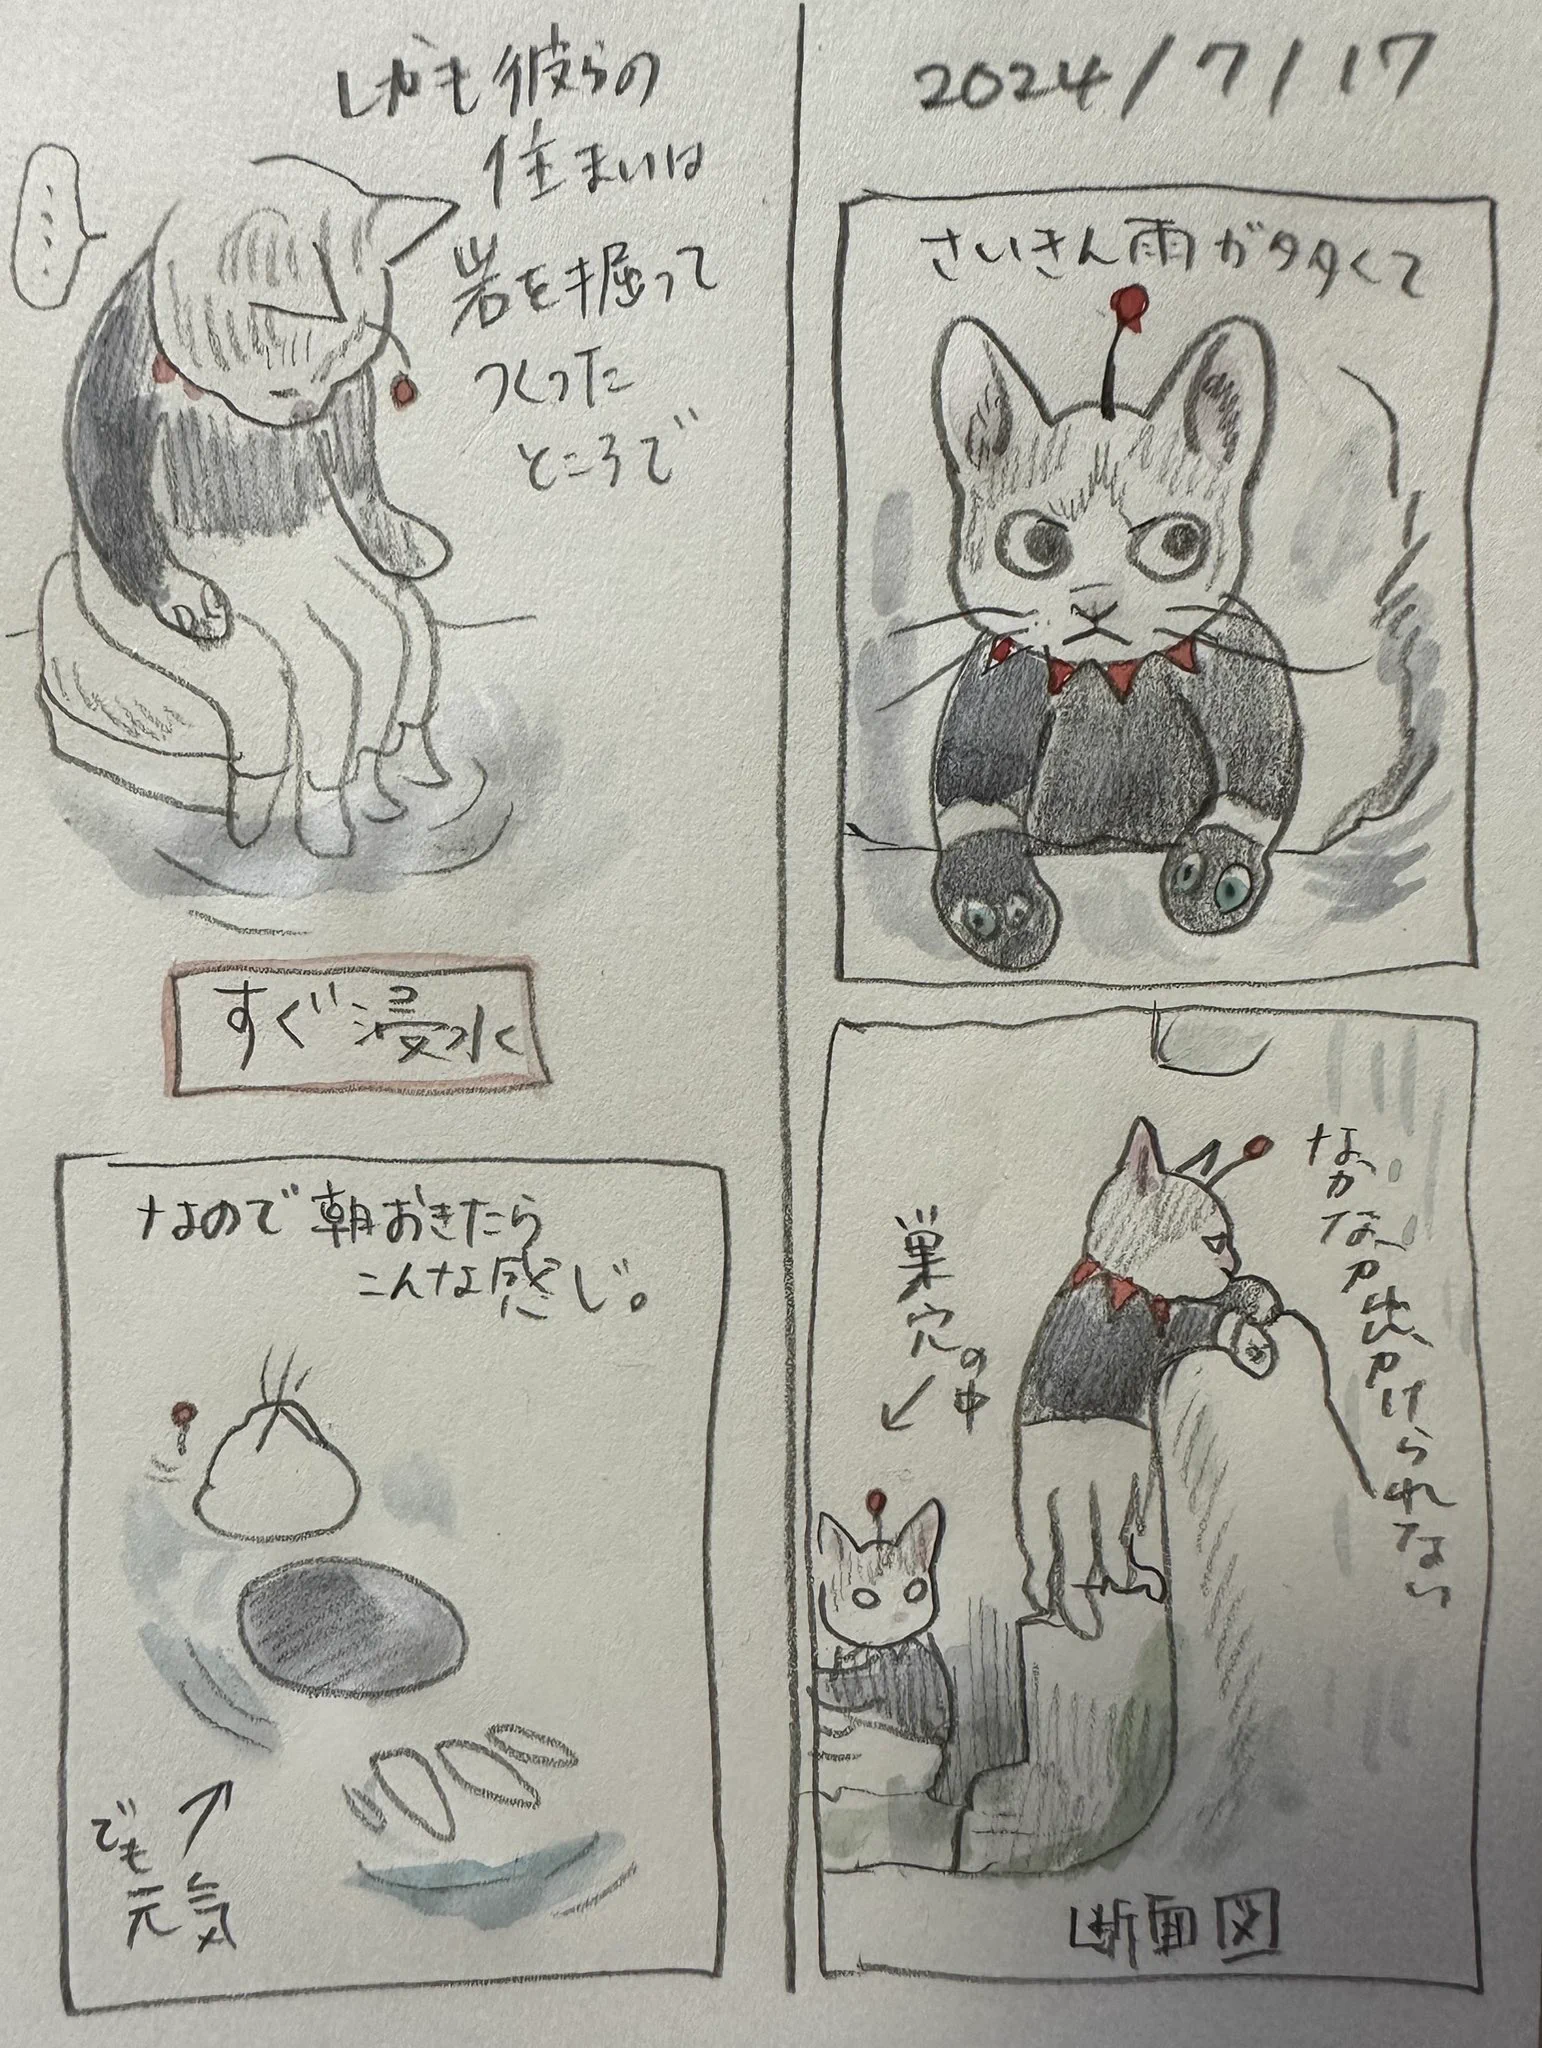 2024/7/17
さいきん雨が多くて
なかなか出かけられない
巣穴の中
断面図
しかも彼らの
住まいは
岩を掘って
つくった
ところで
すぐ浸水
なので朝おきたら
こんな感じ。
でも
元気